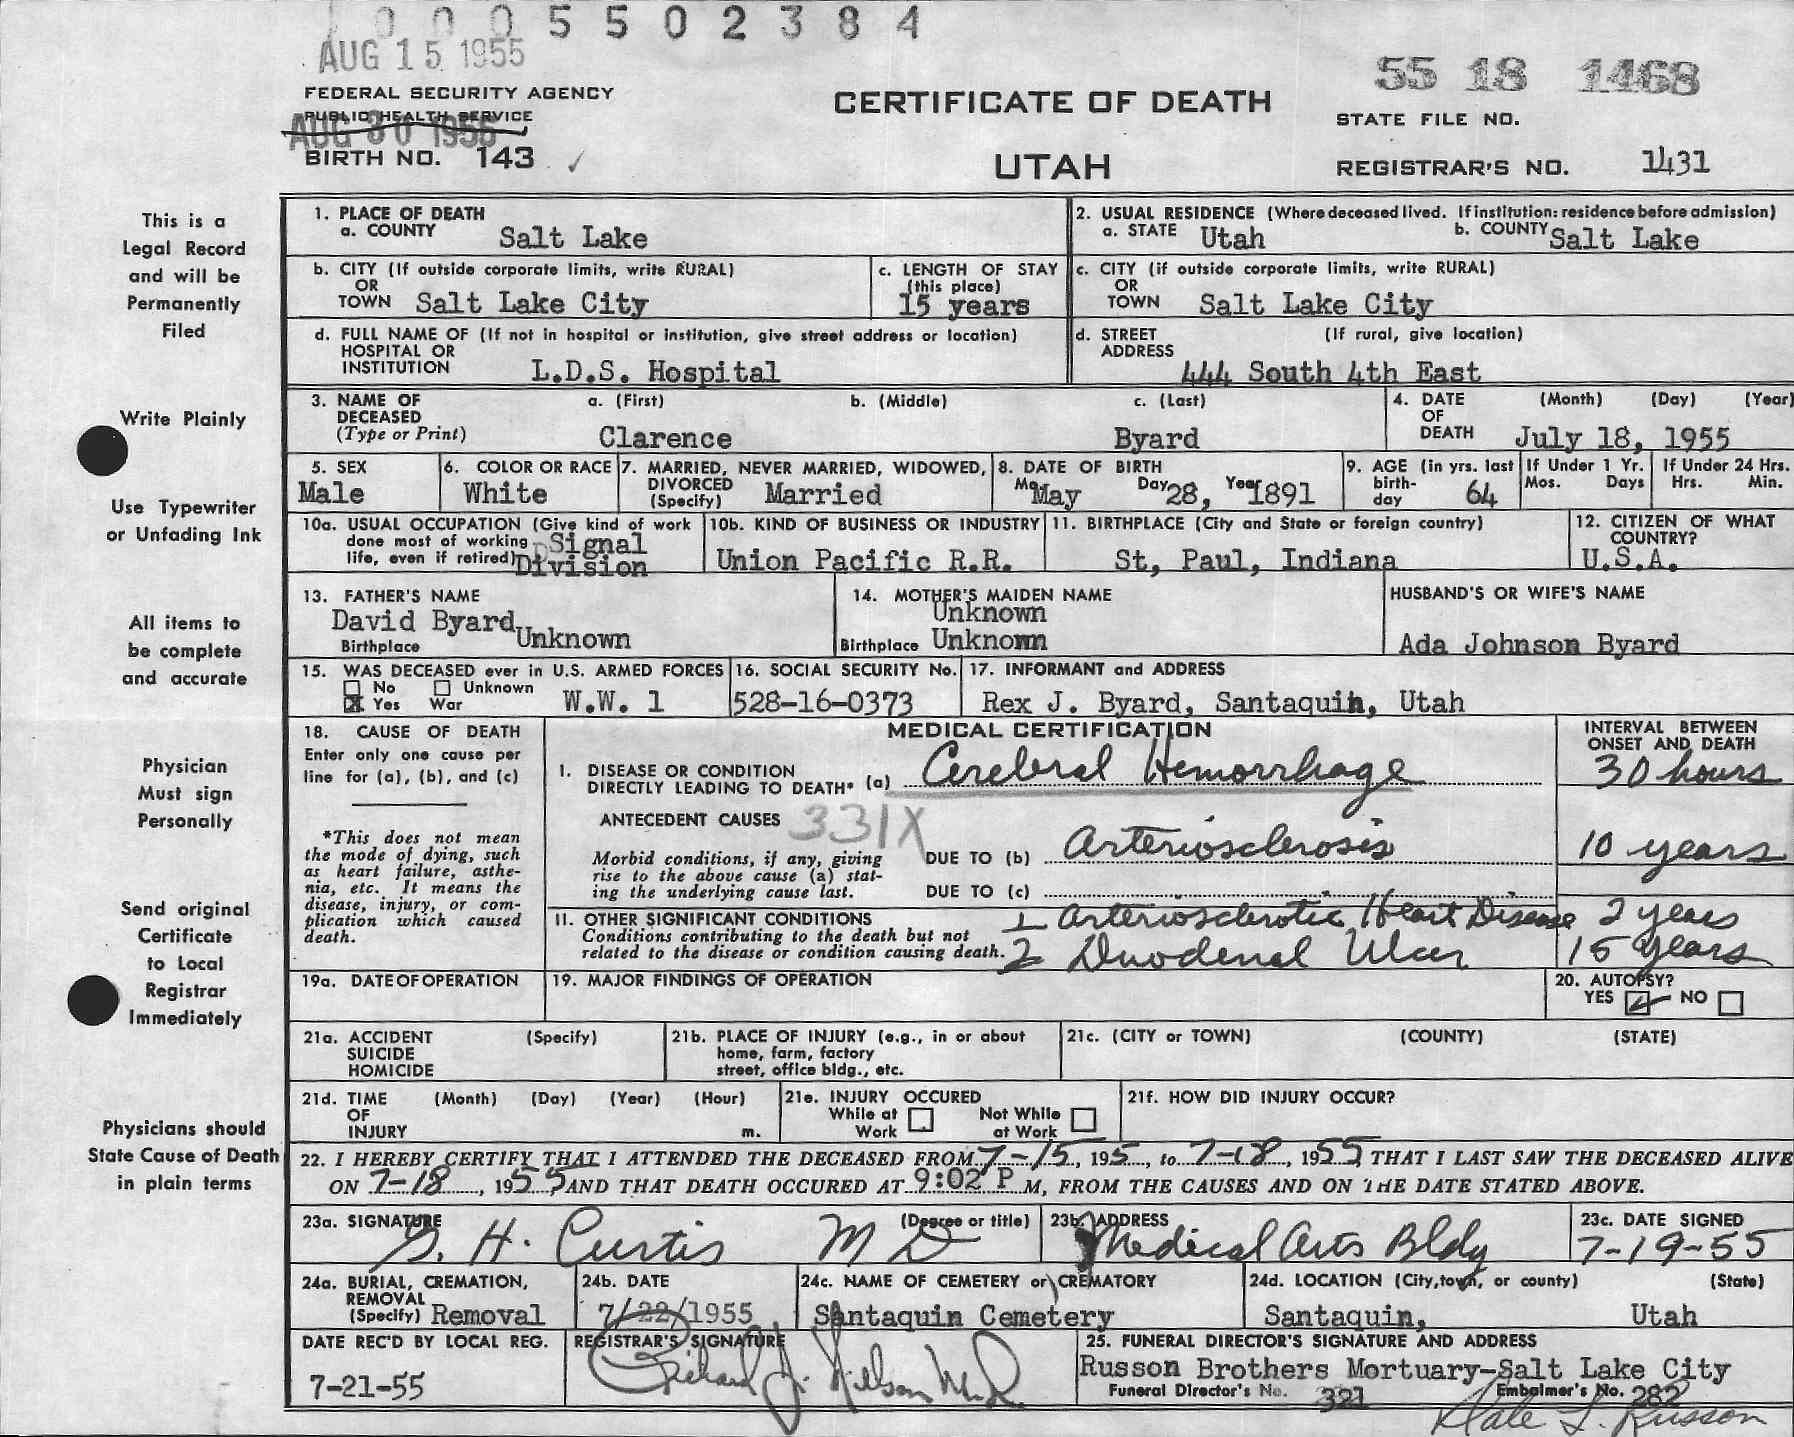 0 0 0 5 5 0 2 3 8 4
AUG 15 1955
55 18 1468
FEDERAL SECURITY AGENCY
CERTIFICATE OF DEATH
PUBLIC HEALTH SERVICE
STATE FILE NO.
AUG 30 1955
BIRTH NO. 143 ✓
UTAH
REGISTRAR'S NO. 1431
This is a
Legal Record
and will be
Permanently
Filed
Write Plainly
Use Typewriter
or Unfading Ink
All items to
be complete
and accurate
Physician
Must sign
Personally
Send original
Certificate
to Local
Registrar
Immediately
Physicians should
State Cause of Death
in plain terms
1. PLACE OF DEATH
a. COUNTY Salt Lake
2. USUAL RESIDENCE (Where deceased lived. If institution: residence before admission)
a. STATE Utah b. COUNTY Salt Lake
b. CITY (If outside corporate limits, write RURAL)
OR
TOWN Salt Lake City
c. LENGTH OF STAY
(this place)
15 years
c. CITY (if outside corporate limits, write RURAL)
OR
TOWN Salt Lake City
d. FULL NAME OF (If not in hospital or institution, give street address or location)
HOSPITAL OR
INSTITUTION L.D.S. Hospital
d. STREET (If rural, give location)
ADDRESS
444 South 4th East
3. NAME OF a. (First) b. (Middle) c. (Last)
DECEASED
(Type or Print) Clarence Byard
4. DATE (Month) (Day) (Year)
OF
DEATH July 18, 1955
5. SEX
Male
6. COLOR OR RACE
White
7. MARRIED, NEVER MARRIED, WIDOWED,
DIVORCED
(Specify) Married
8. DATE OF BIRTH
Mo. May Day 28, Year 1891
9. AGE (in yrs. last
birth-
day 64
If Under 1 Yr.
Mos. Days
If Under 24 Hrs.
Hrs. Min.
10a. USUAL OCCUPATION (Give kind of work
done most of working Signal
life, even if retired) Division
10b. KIND OF BUSINESS OR INDUSTRY
Union Pacific R.R.
11. BIRTHPLACE (City and State or foreign country)
St, Paul, Indiana
12. CITIZEN OF WHAT
COUNTRY?
U.S.A.
13. FATHER'S NAME
David Byard
Birthplace Unknown
14. MOTHER'S MAIDEN NAME
Unknown
Birthplace Unknown
HUSBAND'S OR WIFE'S NAME
Ada Johnson Byard
15. WAS DECEASED ever in U.S. ARMED FORCES
☐ No ☐ Unknown
☒ Yes War W.W. 1
16. SOCIAL SECURITY No.
528-16-0373
17. INFORMANT and ADDRESS
Rex J. Byard, Santaquin, Utah
18. CAUSE OF DEATH
Enter only one cause per
line for (a), (b), and (c)
*This does not mean
the mode of dying, such
as heart failure, asthe-
nia, etc. It means the
disease, injury, or com-
plication which caused
death.
MEDICAL CERTIFICATION
INTERVAL BETWEEN
ONSET AND DEATH
I. DISEASE OR CONDITION
DIRECTLY LEADING TO DEATH* (a) Cerebral Hemorrhage 30 hours
ANTECEDENT CAUSES 331X
Morbid conditions, if any, giving
rise to the above cause (a) stat-
ing the underlying cause last.
DUE TO (b) Arteriosclerosis 10 years
DUE TO (c)
II. OTHER SIGNIFICANT CONDITIONS
Conditions contributing to the death but not
related to the disease or condition causing death.
1 Arteriosclerotic Heart Disease 2 years
2 Duodenal Ulcer 15 years
19a. DATE OF OPERATION
19. MAJOR FINDINGS OF OPERATION
20. AUTOPSY?
YES ☑ NO ☐
21a. ACCIDENT (Specify)
SUICIDE
HOMICIDE
21b. PLACE OF INJURY (e.g., in or about
home, farm, factory
street, office bldg., etc.
21c. (CITY or TOWN) (COUNTY) (STATE)
21d. TIME (Month) (Day) (Year) (Hour)
OF
INJURY m.
21e. INJURY OCCURED
While at Work ☐ Not While at Work ☐
21f. HOW DID INJURY OCCUR?
22. I HEREBY CERTIFY THAT I ATTENDED THE DECEASED FROM 7-15, 195 , to 7-18, 1955, THAT I LAST SAW THE DECEASED ALIVE
ON 7-18, 1955, AND THAT DEATH OCCURED AT 9:02 P M, FROM THE CAUSES AND ON THE DATE STATED ABOVE.
23a. SIGNATURE (Degree or title)
H. Curtis M D
23b. ADDRESS
Medical Arts Bldg
23c. DATE SIGNED
7-19-55
24a. BURIAL, CREMATION,
REMOVAL
(Specify) Removal
24b. DATE
7/22/1955
24c. NAME OF CEMETERY or CREMATORY
Santaquin Cemetery
24d. LOCATION (City, town, or county) (State)
Santaquin, Utah
DATE REC'D BY LOCAL REG.
7-21-55
REGISTRAR'S SIGNATURE
Richard
25. FUNERAL DIRECTOR'S SIGNATURE AND ADDRESS
Russon Brothers Mortuary-Salt Lake City
Funeral Director's No. 321 Embalmer's No. 282
Dale L. Russon